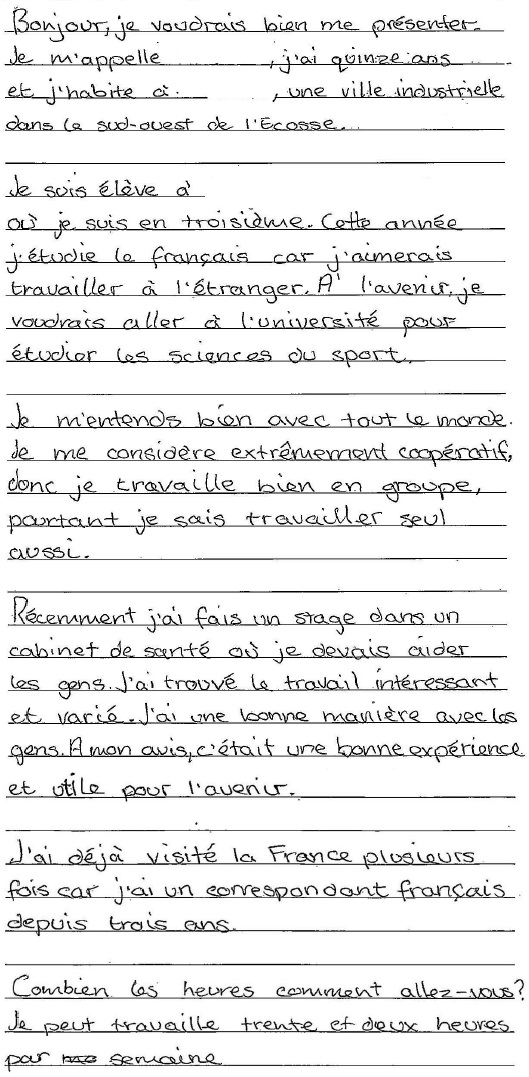 Bonjour, je voudrais bien me présenter.
Je m'appelle , j'ai quinze ans
et j'habite à , une ville industrielle
dans le sud-ouest de l'Ecosse.
Je suis élève à
où je suis en troisième. Cette année
j'étudie le français car j'aimerais
travailler à l'étranger. A l'avenir, je
voudrais aller à l'université pour
étudier les sciences du sport.
Je m'entends bien avec tout le monde.
Je me considère extrêmement coopératif,
donc je travaille bien en groupe,
pourtant je sais travailler seul
aussi.
Récemment j'ai fais un stage dans un
cabinet de santé où je devais aider
les gens. J'ai trouvé le travail intéressant
et varié. J'ai une bonne manière avec les
gens. A mon avis, c'était une bonne expérience
et utile pour l'avenir.
J'ai déjà visité la France plusieurs
fois car j'ai un correspondant français
depuis trois ans.
Combien les heures comment allez-vous?
Je peut travaille trente et deux heures
par semaine